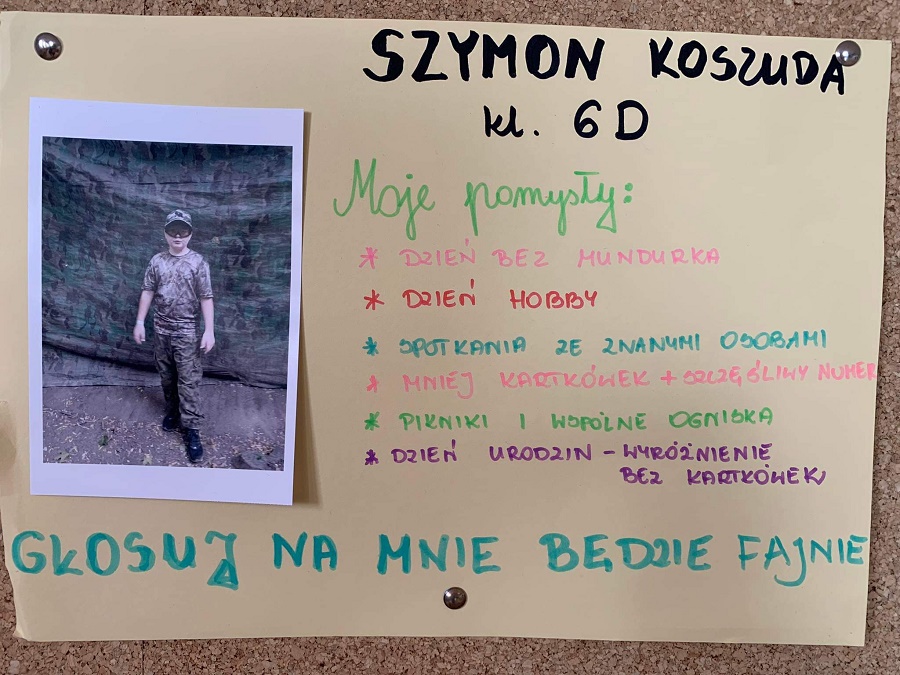 SZYMON KOSZUDA
kl. 6D
Moje pomysły:
* DZIEŃ BEZ MUNDURKA
* DZIEŃ HOBBY
* SPOTKANIA ZE ZNANYMI OSOBAMI
* MNIEJ KARTKÓWEK + SZCZĘŚLIWY NUMER
* PIKNIKI I WSPÓLNE OGNISKA
* DZIEŃ URODZIN - WYRÓŻNIENIE
BEZ KARTKÓWEK
GŁOSUJ NA MNIE BĘDZIE FAJNIE